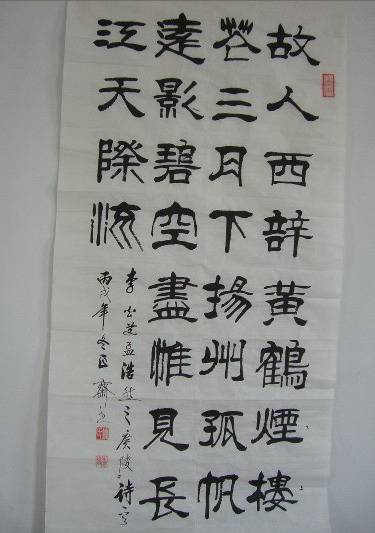 故人西辞黄鶴煙樓
花三月下揚州孤帆
遠影碧空盡惟見長
江天際流
李白送孟浩然之廣陵詩
丙戌年冬